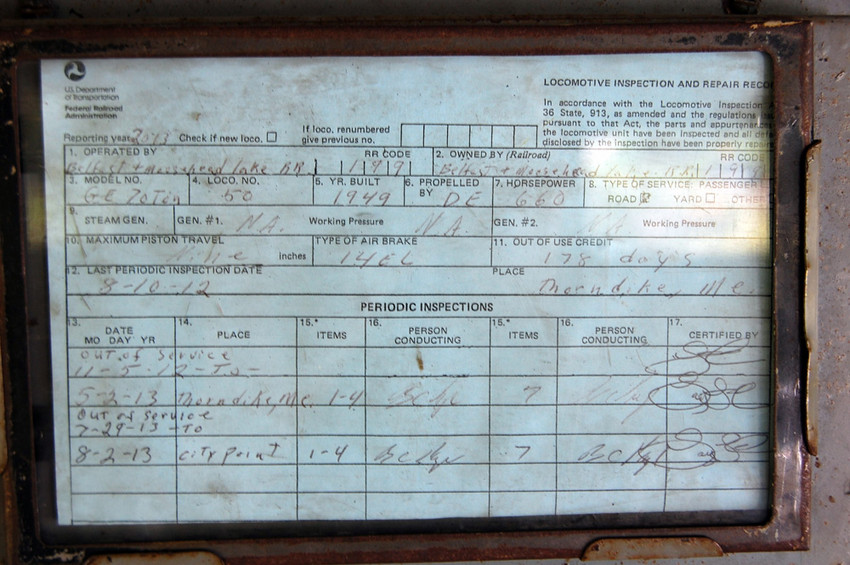 U.S. Department
of Transportation
Federal Railroad
Administration
LOCOMOTIVE INSPECTION AND REPAIR RECO
In accordance with the Locomotive Inspection A
36 State, 913, as amended and the regulations
pursuant to that Act, the parts and appurtenances
the locomotive unit have been inspected and all
disclosed by the inspection have been properly repair
Reporting year 2013 Check if new loco. If loco. renumbered
give previous no.
1. OPERATED BY RR CODE 2. OWNED BY (Railroad) RR CODE
Belfast + Moosehead Lake RR 1991 Belfast + Moosehead Lake RR 199
3. MODEL NO. 4. LOCO. NO. 5. YR. BUILT 6. PROPELLED BY 7. HORSEPOWER 8. TYPE OF SERVICE: PASSENGER
GE 70 Ton 50 1949 DE 660 ROAD YARD OTHE
9. STEAM GEN. GEN. #1. NA. Working Pressure N.A. GEN. #2. NA Working Pressure
10. MAXIMUM PISTON TRAVEL TYPE OF AIR BRAKE 11. OUT OF USE CREDIT
Nine Inches 14EL 178 days
12. LAST PERIODIC INSPECTION DATE PLACE
8-10-12 Thorndike, Me.
PERIODIC INSPECTIONS
13. DATE MO DAY YR 14. PLACE 15.* ITEMS 16. PERSON CONDUCTING 15.* ITEMS 16. PERSON CONDUCTING 17. CERTIFIED BY
Out of Service
11-5-12-To-
5-2-13 Thorndike, Me. 1-4 7
Out of Service
7-29-13-To
8-2-13 City Point 1-4 7